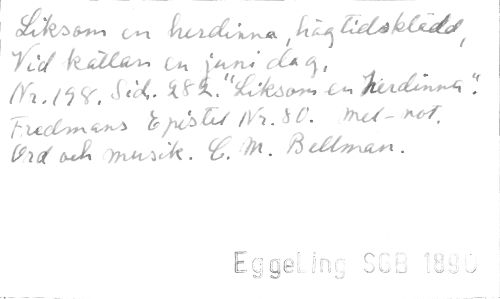 Liksom en herdinna, högtidsklädd,
Vid källan en juni dag,
Nr. 198. Sid. 282. "Liksom en herdinna".
Fredmans Epistel Nr. 80. mel-not.
Ord och musik. C. M. Bellman.
EggeLing SGB 1890